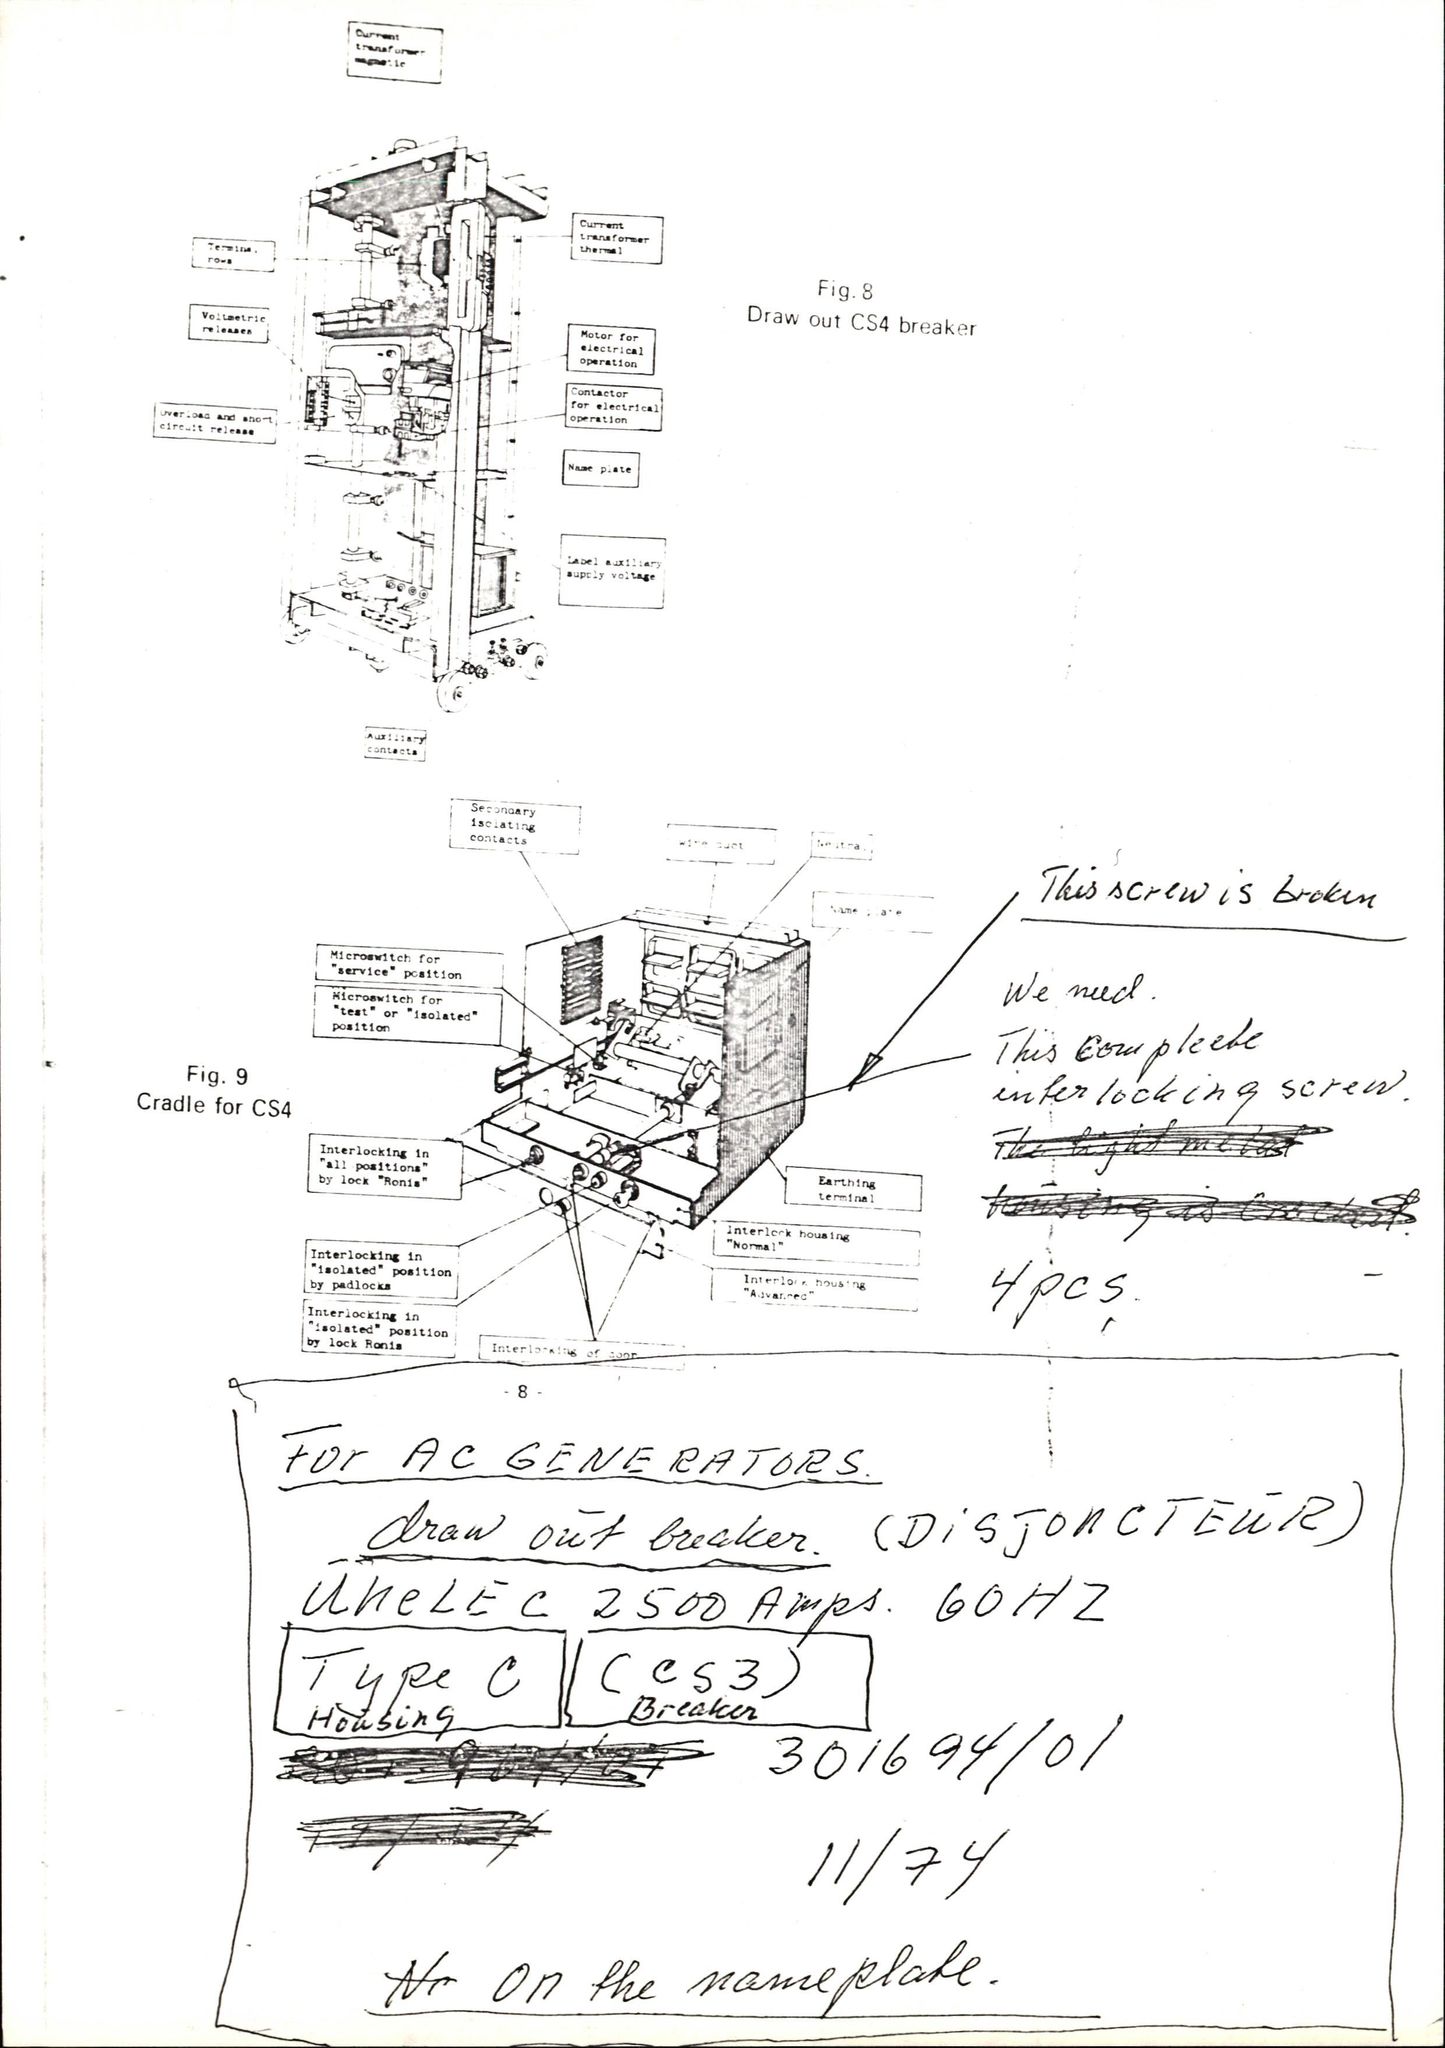 Current
transformer
magnetic
Terminal
rows
Current
transformer
thermal
Fig. 8
Draw out CS4 breaker
Voltmetric
releases
Motor for
electrical
operation
Contactor
for electrical
operation
Overload and short
circuit release
Name plate
Label auxiliary
supply voltage
Auxiliary
contacts
Secondary
isolating
contacts
wire duct
Neutral
Name plate
This screw is broken
Microswitch for
"service" position
Microswitch for
"test" or "isolated"
position
We need.
This compleete
interlocking screw.
The light metal
housing is cracked.
4 pcs.
Fig. 9
Cradle for CS4
Interlocking in
"all positions"
by lock "Ronis"
Earthing
terminal
Interlock housing
"Normal"
Interlocking in
"isolated" position
by padlocks
Interlock housing
"Advanced"
Interlocking in
"isolated" position
by lock Ronis
Interlocking of door
- 8 -
For AC GENERATORS.
draw out breaker. (DISJONCTEUR)
UNELEC 2500 Amps. 60HZ
Type C (CS3)
Housing Breaker
301694/01
11/74
Nr on the nameplate.